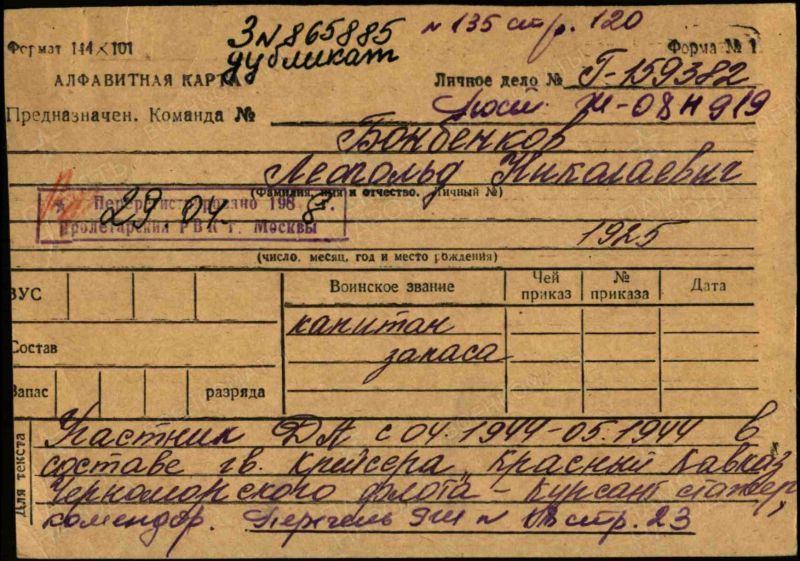 ЗN 865885
дубликат
N 135 стр. 120
Формат 144×101
Форма № 1
АЛФАВИТНАЯ КАРТА
Личное дело № Г-159382
Н-08Н919
Предназначен. Команда №
Бонбенкор
Леопольд Николаевич
(Фамилия, имя и отчество. личный №)
Перерегистрировано 198 8 г.
29 04.
Пролетарский РВК г. Москвы
1925
(число, месяц, год и место рождения)
ВУС
Воинское звание
Чей приказ
№ приказа
Дата
капитан
запаса
Состав
Запас
разряда
Для текста
Участник ДА с 04.1944-05.1944 в
составе гв. Крейсера „Красный Кавказ
Черноморского флота - Курсант стажер,
комендор. Перечень N стр. 23